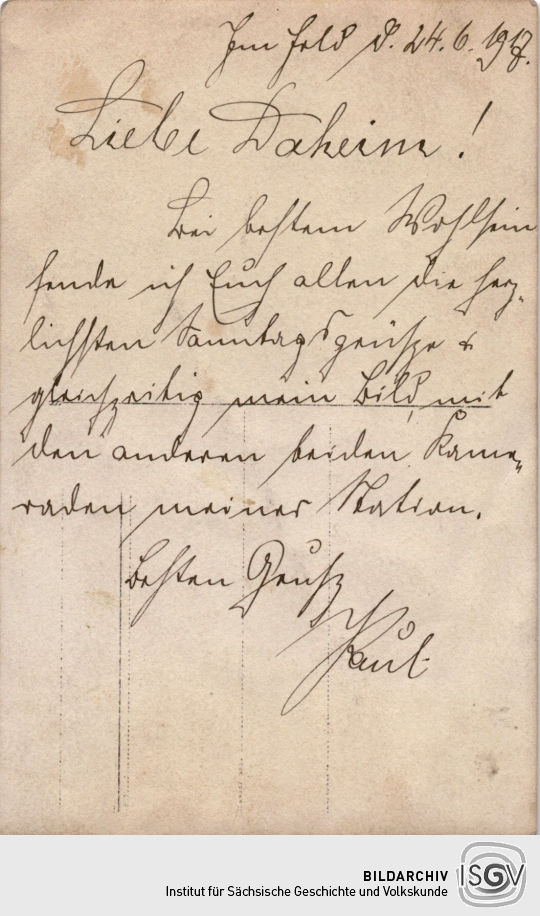 Im Feld d. 24.6.1917.
Liebe Daheim!
Bei bestem Wohlsein
sende ich Euch allen die herz-
lichsten Sonntagsgrüsze &
gleichzeitig mein Bild, mit
den anderen beiden Kame-
raden meiner Station.
Besten Grusz
Paul.
BILDARCHIV
Institut für Sächsische Geschichte und Volkskunde
ISGV